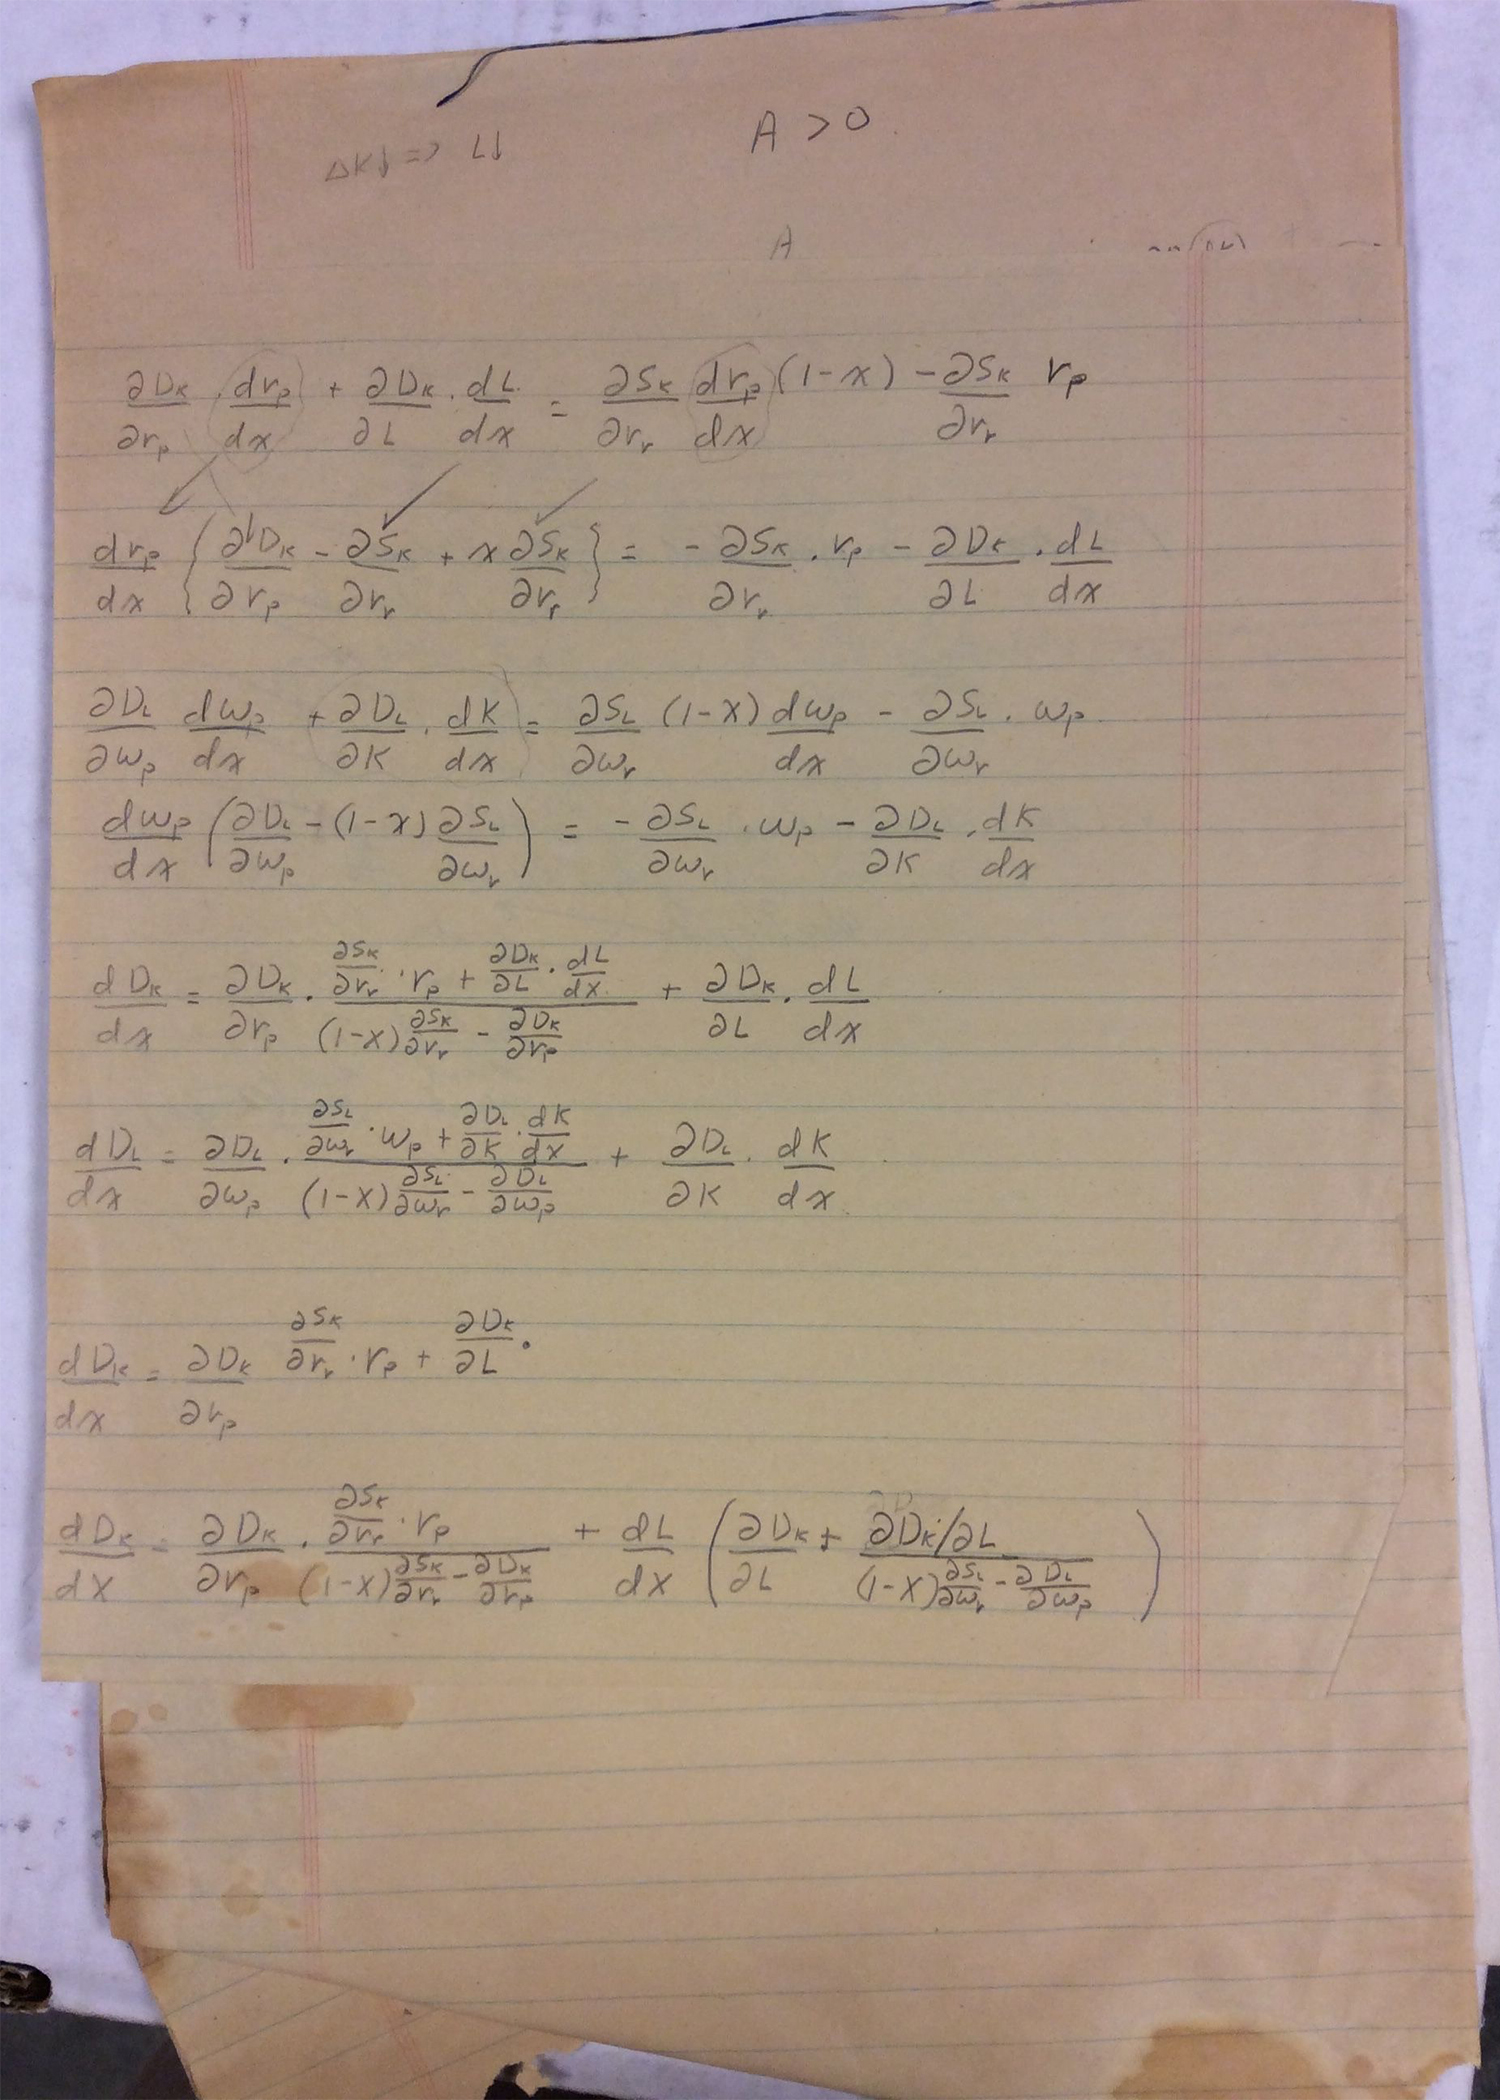 A > 0
ΔK↓ => L↓
A
∂D_K/∂r_p · dr_p/dx + ∂D_K/∂L · dL/dx = ∂S_K/∂r_r dr_p/dx (1-x) - ∂S_K/∂r_r r_p
dr_p/dx {∂D_K/∂r_p - ∂S_K/∂r_r + x ∂S_K/∂r_r} = - ∂S_K/∂r_r · r_p - ∂D_K/∂L · dL/dx
∂D_L/∂w_p dw_p/dx + ∂D_L/∂K · dK/dx = ∂S_L/∂w_r (1-x) dw_p/dx - ∂S_L/∂w_r · w_p
dw_p/dx (∂D_L/∂w_p - (1-x) ∂S_L/∂w_r) = - ∂S_L/∂w_r · w_p - ∂D_L/∂K · dK/dx
dD_K/dx = ∂D_K/∂r_p · (∂S_K/∂r_r · r_p + ∂D_K/∂L · dL/dx)/((1-x) ∂S_K/∂r_r - ∂D_K/∂r_p) + ∂D_K/∂L · dL/dx
dD_L/dx = ∂D_L/∂w_p · (∂S_L/∂w_r · w_p + ∂D_L/∂K · dK/dx)/((1-x) ∂S_L/∂w_r - ∂D_L/∂w_p) + ∂D_L/∂K · dK/dx
dD_K/dx = ∂D_K/∂r_p ∂S_K/∂r_r · r_p + ∂D_K/∂L ·
dD_K/dx = ∂D_K/∂r_p · (∂S_K/∂r_r · r_p)/((1-x) ∂S_K/∂r_r - ∂D_K/∂r_p) + dL/dx (∂D_K/∂L + (∂D_K/∂L)/((1-x) ∂S_L/∂w_r - ∂D_L/∂w_p))